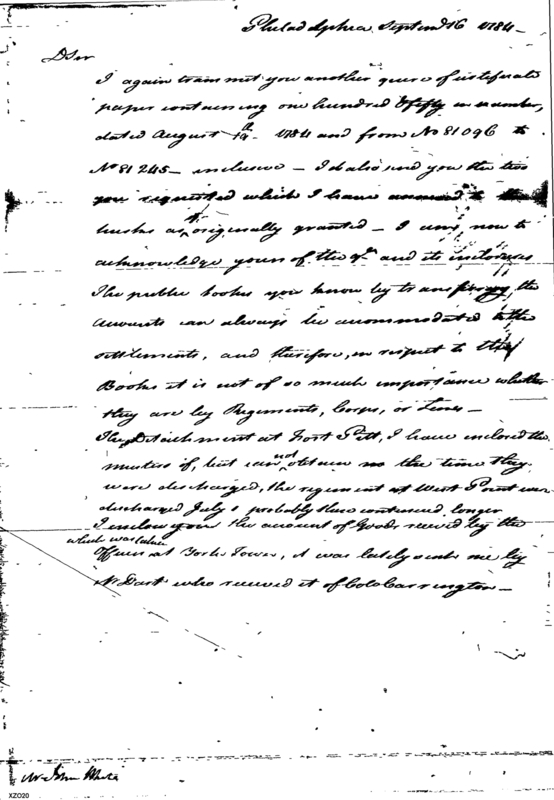 Philadelphia Septem 16 1784 -
D Sir
I again transmit you another quire of certificate
paper containing one hundred & fifty in number,
dated August 1st - 1784 and from No 81096 to
No 81245 - inclusive - I also send you the two
you requested which I have annexed to the
as originally granted - I am now to
acknowledge yours of the and its inclosures
The public books you know by transferring the
accounts can always be accommodated to the
settlements, and therefore, in respect to the
Books it is not of so much importance whether
they are by Regiments, Corps, or Lines -
The Detachment at Fort Pitt, I have inclosed the
musters of, but can not obtain me the time they
were discharged, the regiment at West Point were
discharged July & probably these continued longer
I inclose you the account of Goods received by the
which was taken
Officers at York Town, it was lately sent me by
Mr Dart who received it of Colo Carrington -
Mr John White
XZO20